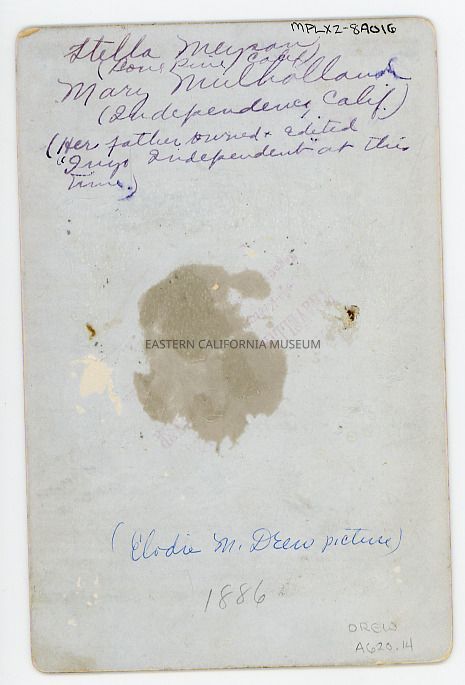 MPLX2-8A016
Stella Meysan
(Lone Pine, Calif)
Mary Mulholland
(Independence, Calif.)
(Her father owned & edited
"Inyo Independent" at this
time.)
EASTERN CALIFORNIA MUSEUM
(Elodie M. Drew picture)
1886
DREW
A620.14